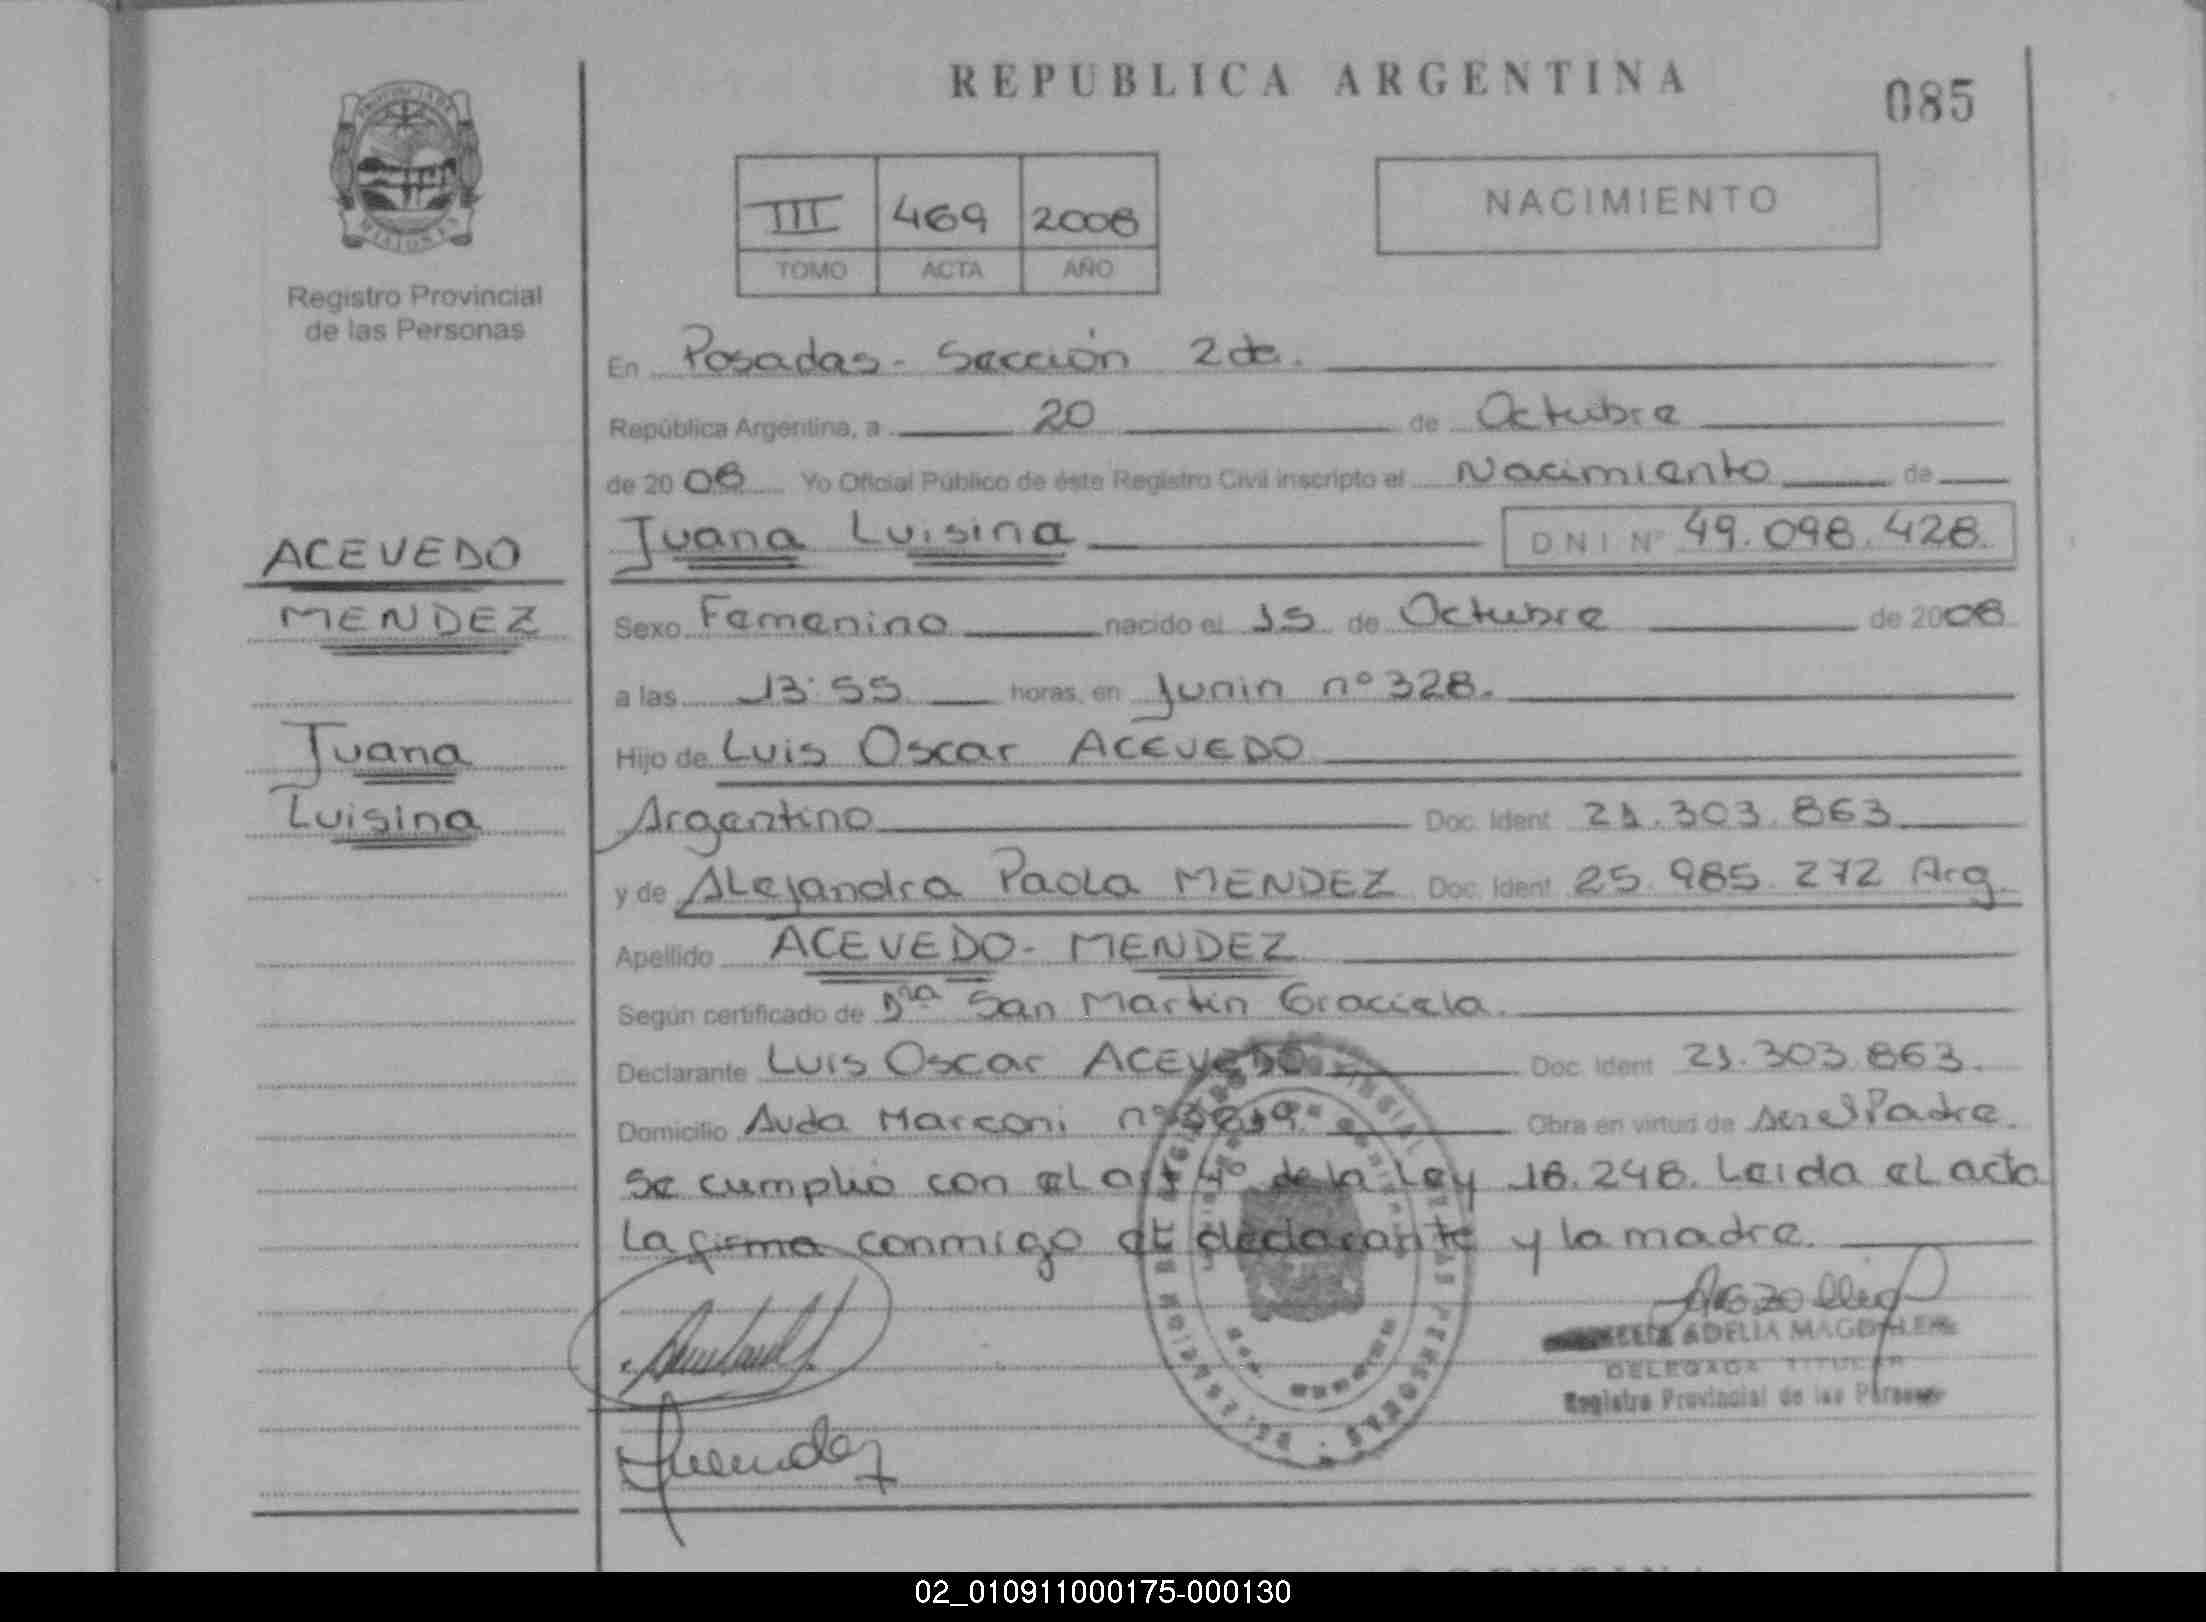 REPUBLICA ARGENTINA
085
PROVINCIA DE
MISIONES
Registro Provincial
de las Personas
III 469 2008
TOMO ACTA AÑO
NACIMIENTO
En Posadas - Sección 2da.
República Argentina, a 20 de Octubre
de 2008 Yo Oficial Público de éste Registro Civil inscripto el Nacimiento de
Juana Luisina DNI Nº 49.098.428.
ACEVEDO
MENDEZ
Juana
Luisina
Sexo Femenino nacido el 15 de Octubre de 2008
a las 13:55 horas, en Junin nº 328.
Hijo de Luis Oscar ACEVEDO
Argentino Doc. Ident 21.303.863
y de Alejandra Paola MENDEZ Doc. Ident 25.985.272 Arg.
Apellido ACEVEDO - MENDEZ
Según certificado de Dra San Martin Graciela.
Declarante Luis Oscar ACEVEDO Doc. Ident 21.303.863.
Domicilio Avda Marconi Obra en virtud de ser el Padre.
Se cumplió con el art 4º de la Ley 18.248. Leida el acta
La firma conmigo el declarante y la madre.
ADELIA MAGDALENA
DELEGADA TITULAR
Registro Provincial de las Personas
02_010911000175-000130